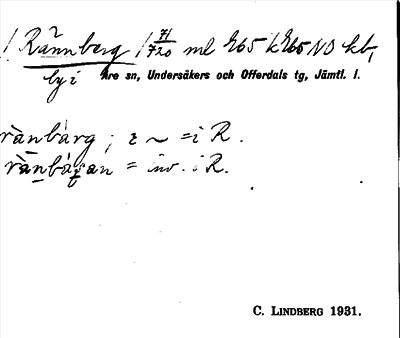 Rännberg 1 71/720 ml 265 k 265 NO kb,
by i Åre sn, Undersåkers och Offerdals tg, Jämtl. l.
rànbárg ; i ~ = i R.
rànbáṛan = inv. i R.
C. LINDBERG 1931.